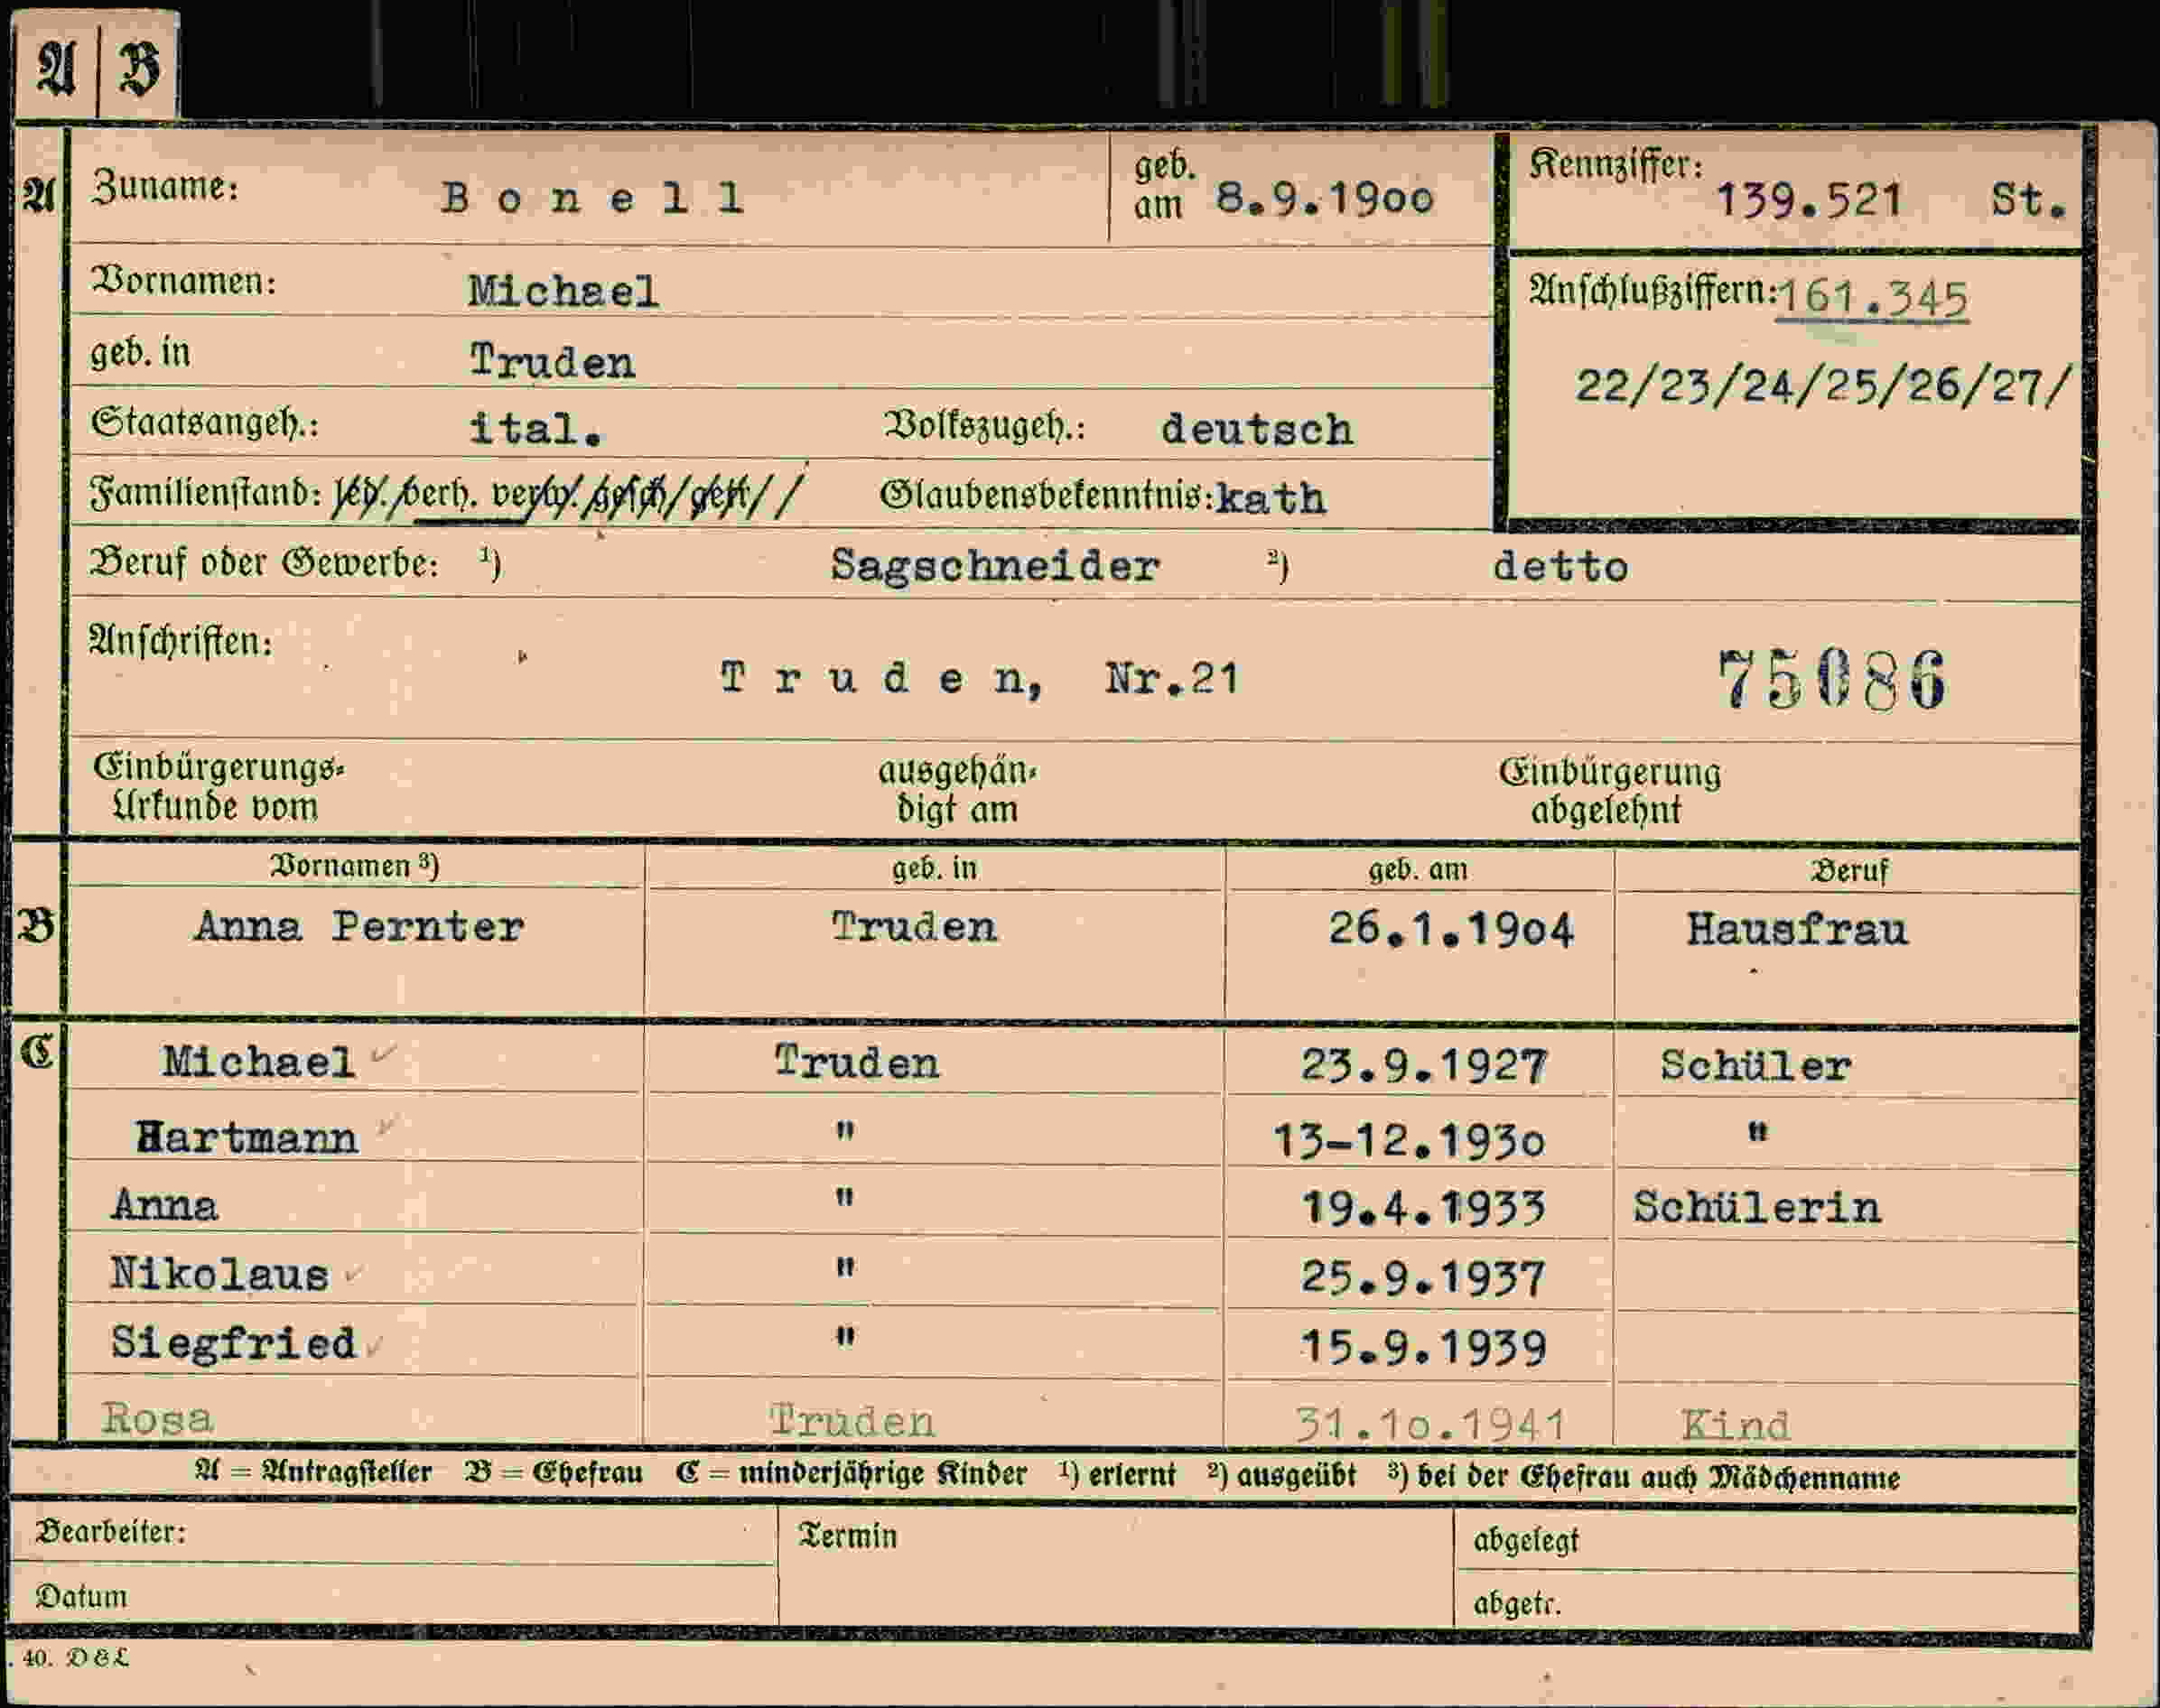 A B
A Zuname: Bonell geb. am 8.9.1900 Kennziffer: 139.521 St.
Vornamen: Michael Anschlußziffern: 161.345
geb. in Truden 22/23/24/25/26/27/
Staatsangeh.: ital. Volkszugeh.: deutsch
Familienstand: led. verh. verw. gesch. getr. Glaubensbekenntnis: kath
Beruf oder Gewerbe: 1) Sagschneider 2) detto
Anschriften: Truden, Nr.21 75086
Einbürgerungs- ausgehän- Einbürgerung
Urkunde vom digt am abgelehnt
Vornamen 3) geb. in geb. am Beruf
B Anna Pernter Truden 26.1.1904 Hausfrau
C Michael Truden 23.9.1927 Schüler
Hartmann " 13-12.1930 "
Anna " 19.4.1933 Schülerin
Nikolaus " 25.9.1937
Siegfried " 15.9.1939
Rosa Truden 31.10.1941 Kind
A = Antragsteller B = Ehefrau C = minderjährige Kinder 1) erlernt 2) ausgeübt 3) bei der Ehefrau auch Mädchenname
Bearbeiter: Termin abgelegt
Datum abgetr.
. 40. D & L